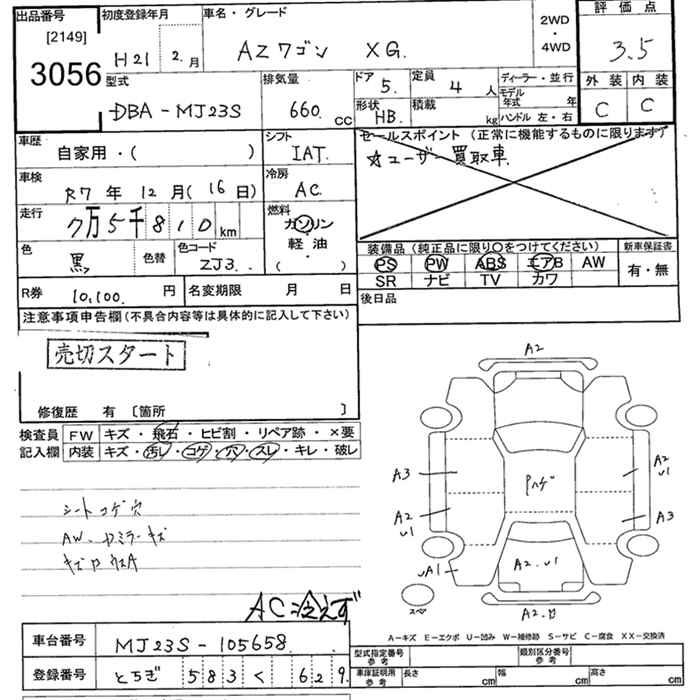 出品番号 初度登録年月 車名・グレード 2WD・4WD 評価点
[2149]
3056 H21 2.月 AZワゴン XG. 3.5
型式 排気量 ドア 定員 ディーラー・並行 外装 内装
DBA-MJ23S 660. cc 5. 4 人 モデル年式 年 C C
形状 積載 ハンドル 左・右
HB. kg
車歴 シフト セールスポイント (正常に機能するものに限ります)
自家用・( ) IAT. ☆ユーザー買取車.
車検 冷房
R7 年 12 月 (16 日) AC.
走行 燃料
7万5千810 km ガソリン
軽油
・
( )
色 色替 色コード 装備品 (純正品に限り〇をつけてください) 新車保証書
黒, ZJ3. PS PW ABS エアB AW 有・無
SR ナビ TV カワ
R券 10,100. 円 名変期限 月 日 後日品
注意事項申告欄(不具合内容等は具体的に記入して下さい)
売切スタート
修復歴 有 [箇所 ]
検査員 FW キズ・飛石・ヒビ割・リペア跡・×要
記入欄 内装 キズ・汚レ・コゲ・穴・スレ・キレ・破レ
シートコゲ穴
AC冷えず
A2
A3 Pハゲ A2 U1
A2 U1 A3
UA1 A2.U1
スペ A2.
A-キズ E-エクボ U-凹み W-補修跡 S-サビ C-腐食 XX-交換済
車台番号 MJ23S-105658 型式指定番号 参考 類別区分番号 参考
登録番号 とちぎ 583 く 629 車庫証明用 参考 長さ cm 幅 cm 高さ cm